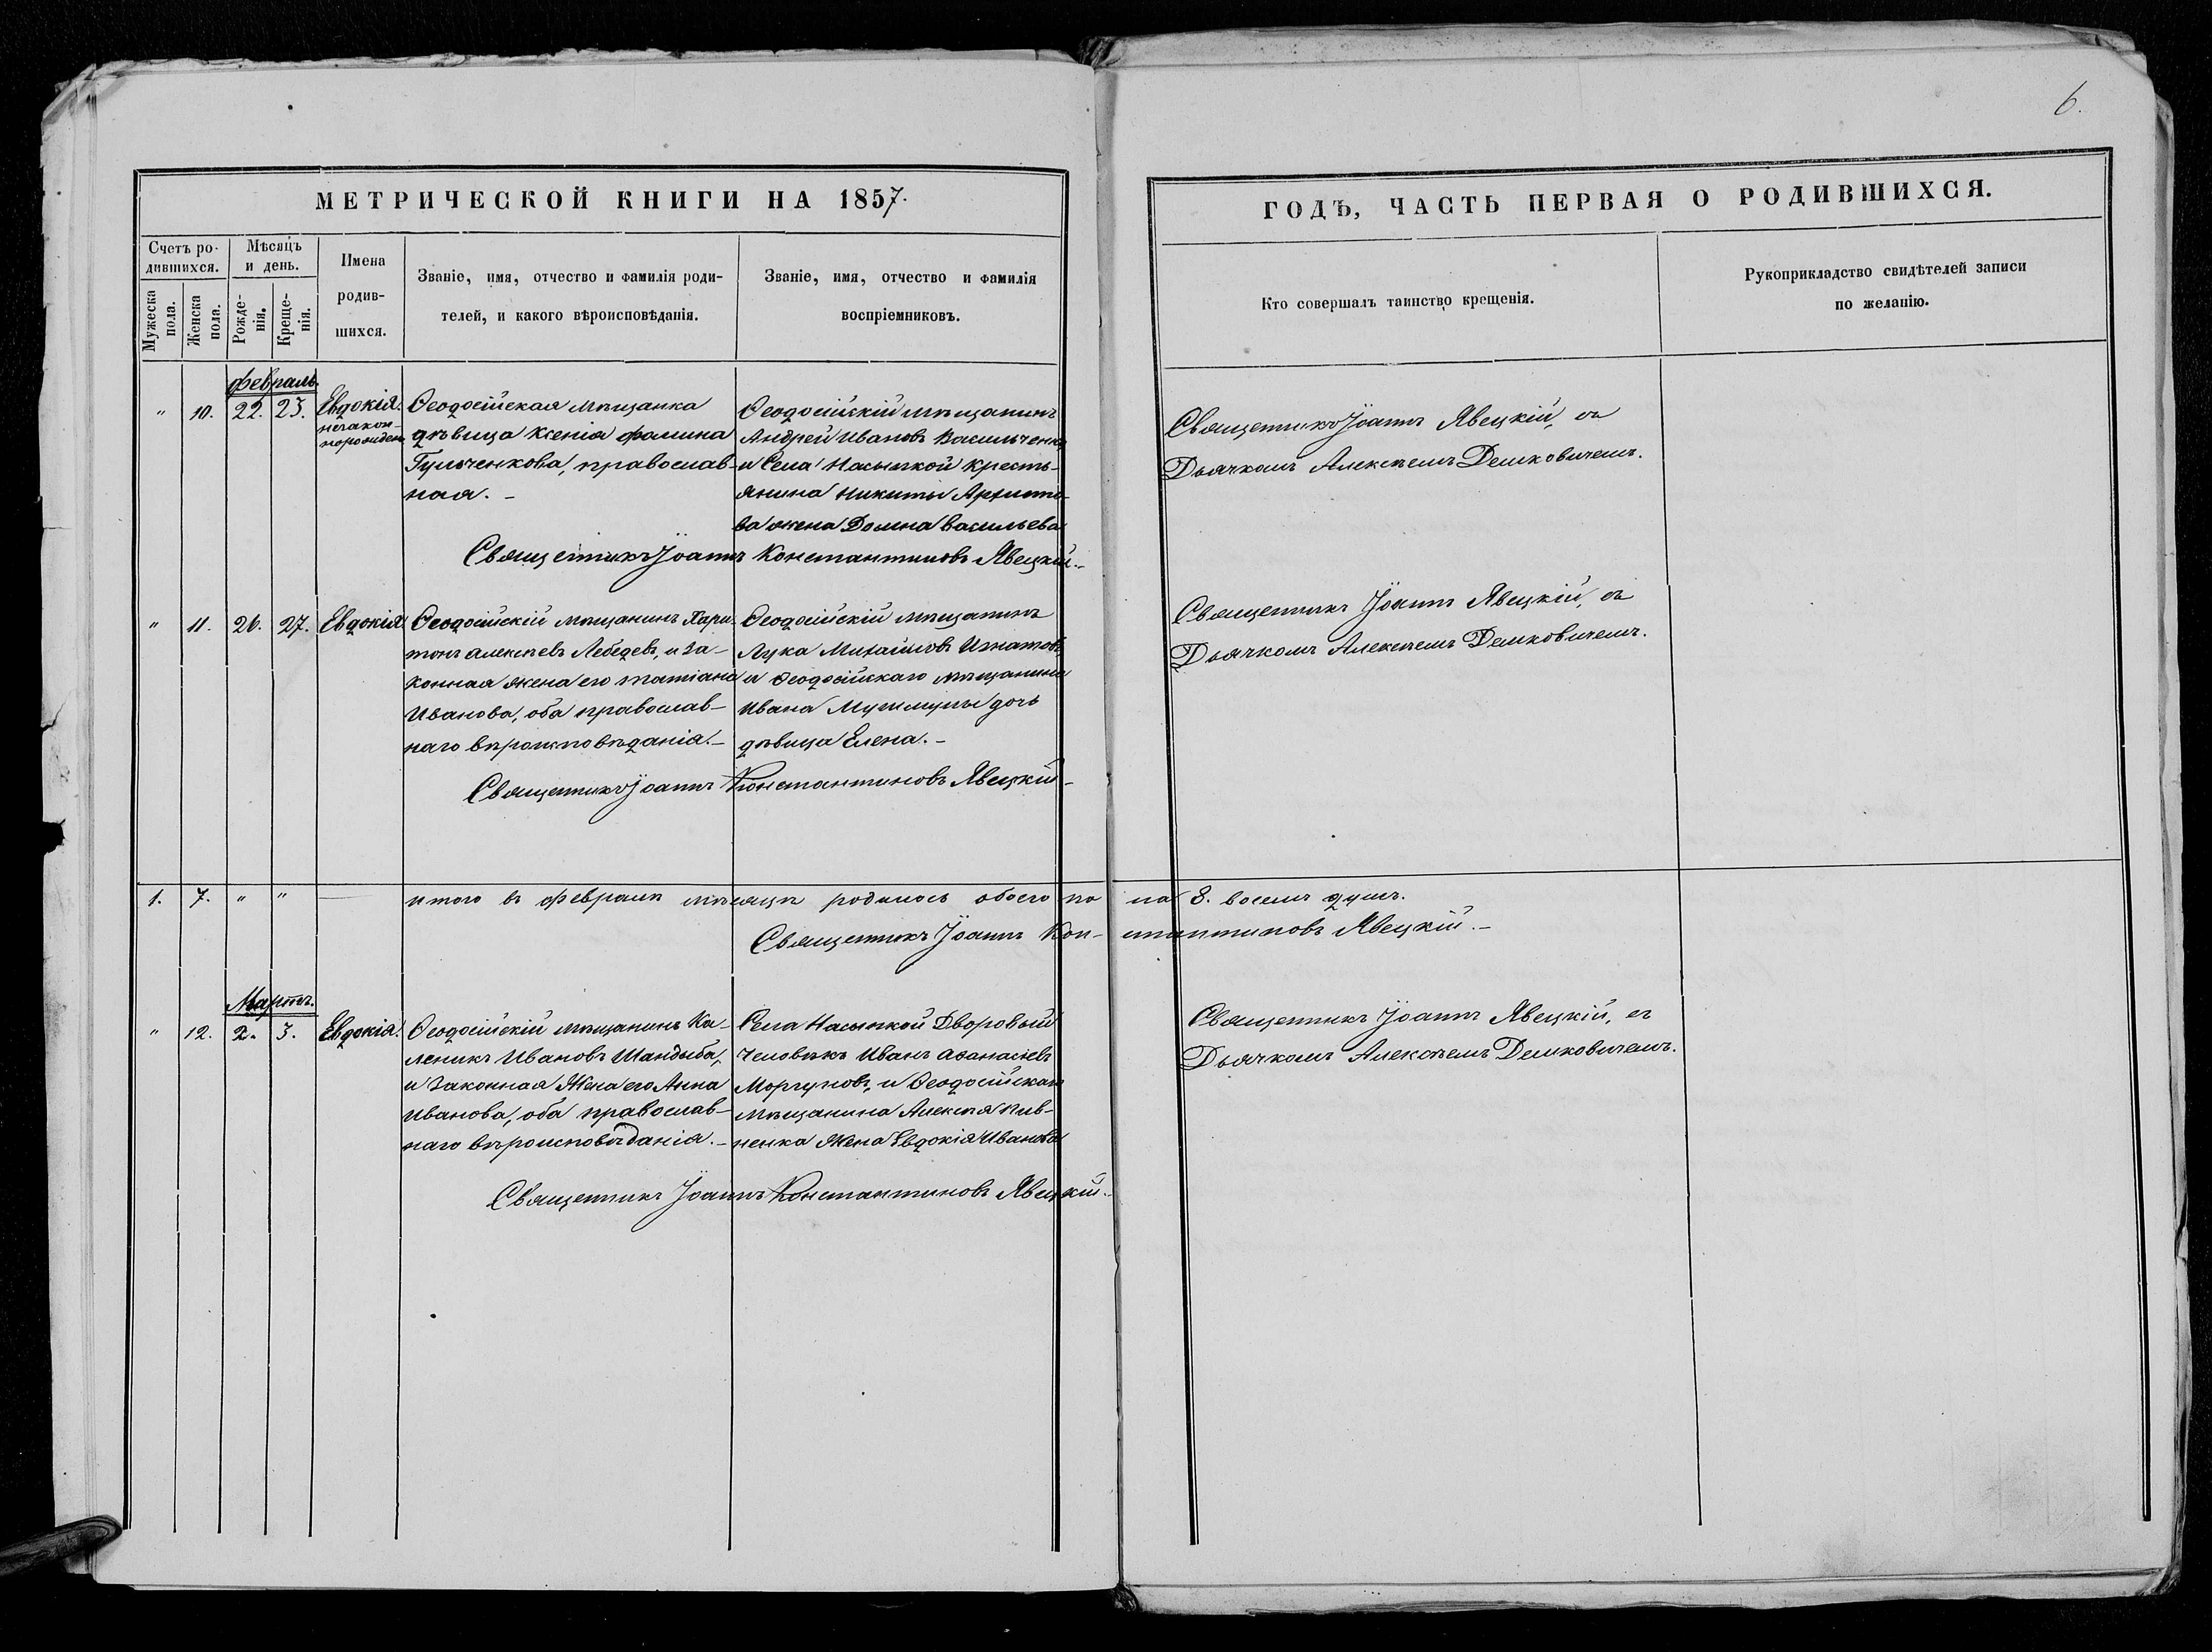 6.
МЕТРИЧЕСКОЙ КНИГИ НА 1857.
ГОДЪ, ЧАСТЬ ПЕРВАЯ О РОДИВШИХСЯ.
Счетъ ро-
дившихся.
Мужеска
пола.
Женска
пола.
Мѣсяцъ
и день.
Рожде-
нія.
Креще-
нія.
Имена
родив-
шихся.
Званіе, имя, отчество и фамилія роди-
телей, и какого вѣроисповѣданія.
Званіе, имя, отчество и фамилія
воспріемниковъ.
Кто совершалъ таинство крещенія.
Рукоприкладство свидѣтелей записи
по желанію.
февраль.
" 10. 22. 23. Евдокія.
незакон-
норожден
Ѳеодосійская мѣщанка
дѣвица Ксенія Фомина
Гульченкова, православ-
ная. –
Ѳеодосійскій мѣщанинъ
Андрей Ивановъ Васильченко
и Села Насыпкой кресть-
янина Никиты
ва жена Домна Васильева
Священникъ Іоаннъ Константиновъ Явецкій. –
Священникъ Іоаннъ Явецкій, съ
Дьячкомъ Алексѣемъ Демковичемъ.
" 11. 26. 27. Евдокія
Ѳеодосійскій мѣщанинъ Хари-
тонъ Алексѣевъ Лебедевъ, и за-
конная жена его Татіана
Иванова, оба православ-
наго вѣроисповѣданія. –
Ѳеодосійскій мѣщанинъ
Лука Михайловъ Игнатовъ,
и Ѳеодосійскаго мѣщанина
Ивана дочь
дѣвица Елена. –
Священникъ Іоаннъ Константиновъ Явецкій –
Священникъ Іоаннъ Явецкій, съ
Дьячкомъ Алексѣемъ Демковичемъ.
1. 7. " " — итого въ февралѣ мѣсяцѣ родилось обоего по ла 8. восемь душъ.
Священникъ Іоаннъ Кон- стантиновъ Явецкій. –
Мартъ.
" 12. 2. 3. Евдокія.
Ѳеодосійскій мѣщанинъ Ка-
леникъ Ивановъ Шандыба,
и Законная Жена его Анна
Иванова, оба православ-
наго вѣроисповѣданія. –
Села Насыпкой Дворовый
Человѣкъ Иванъ Аѳанасіевъ
Моргуновъ, и Ѳеодосійскаго
Мѣщанина Алексѣя Пив-
ненка Жена Евдокія Иванова
Священникъ Іоаннъ Константиновъ Явецкій. –
Священникъ Іоаннъ Явецкій, съ
Дьячкомъ Алексѣемъ Демковичемъ.